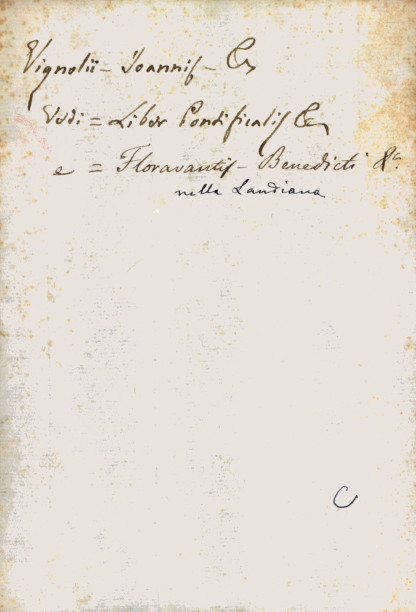 Vignolii - Joannis - &
Vedi = Liber Pontificalis &
e = Floravantis - Benedicti &c.
nella Landiana
C